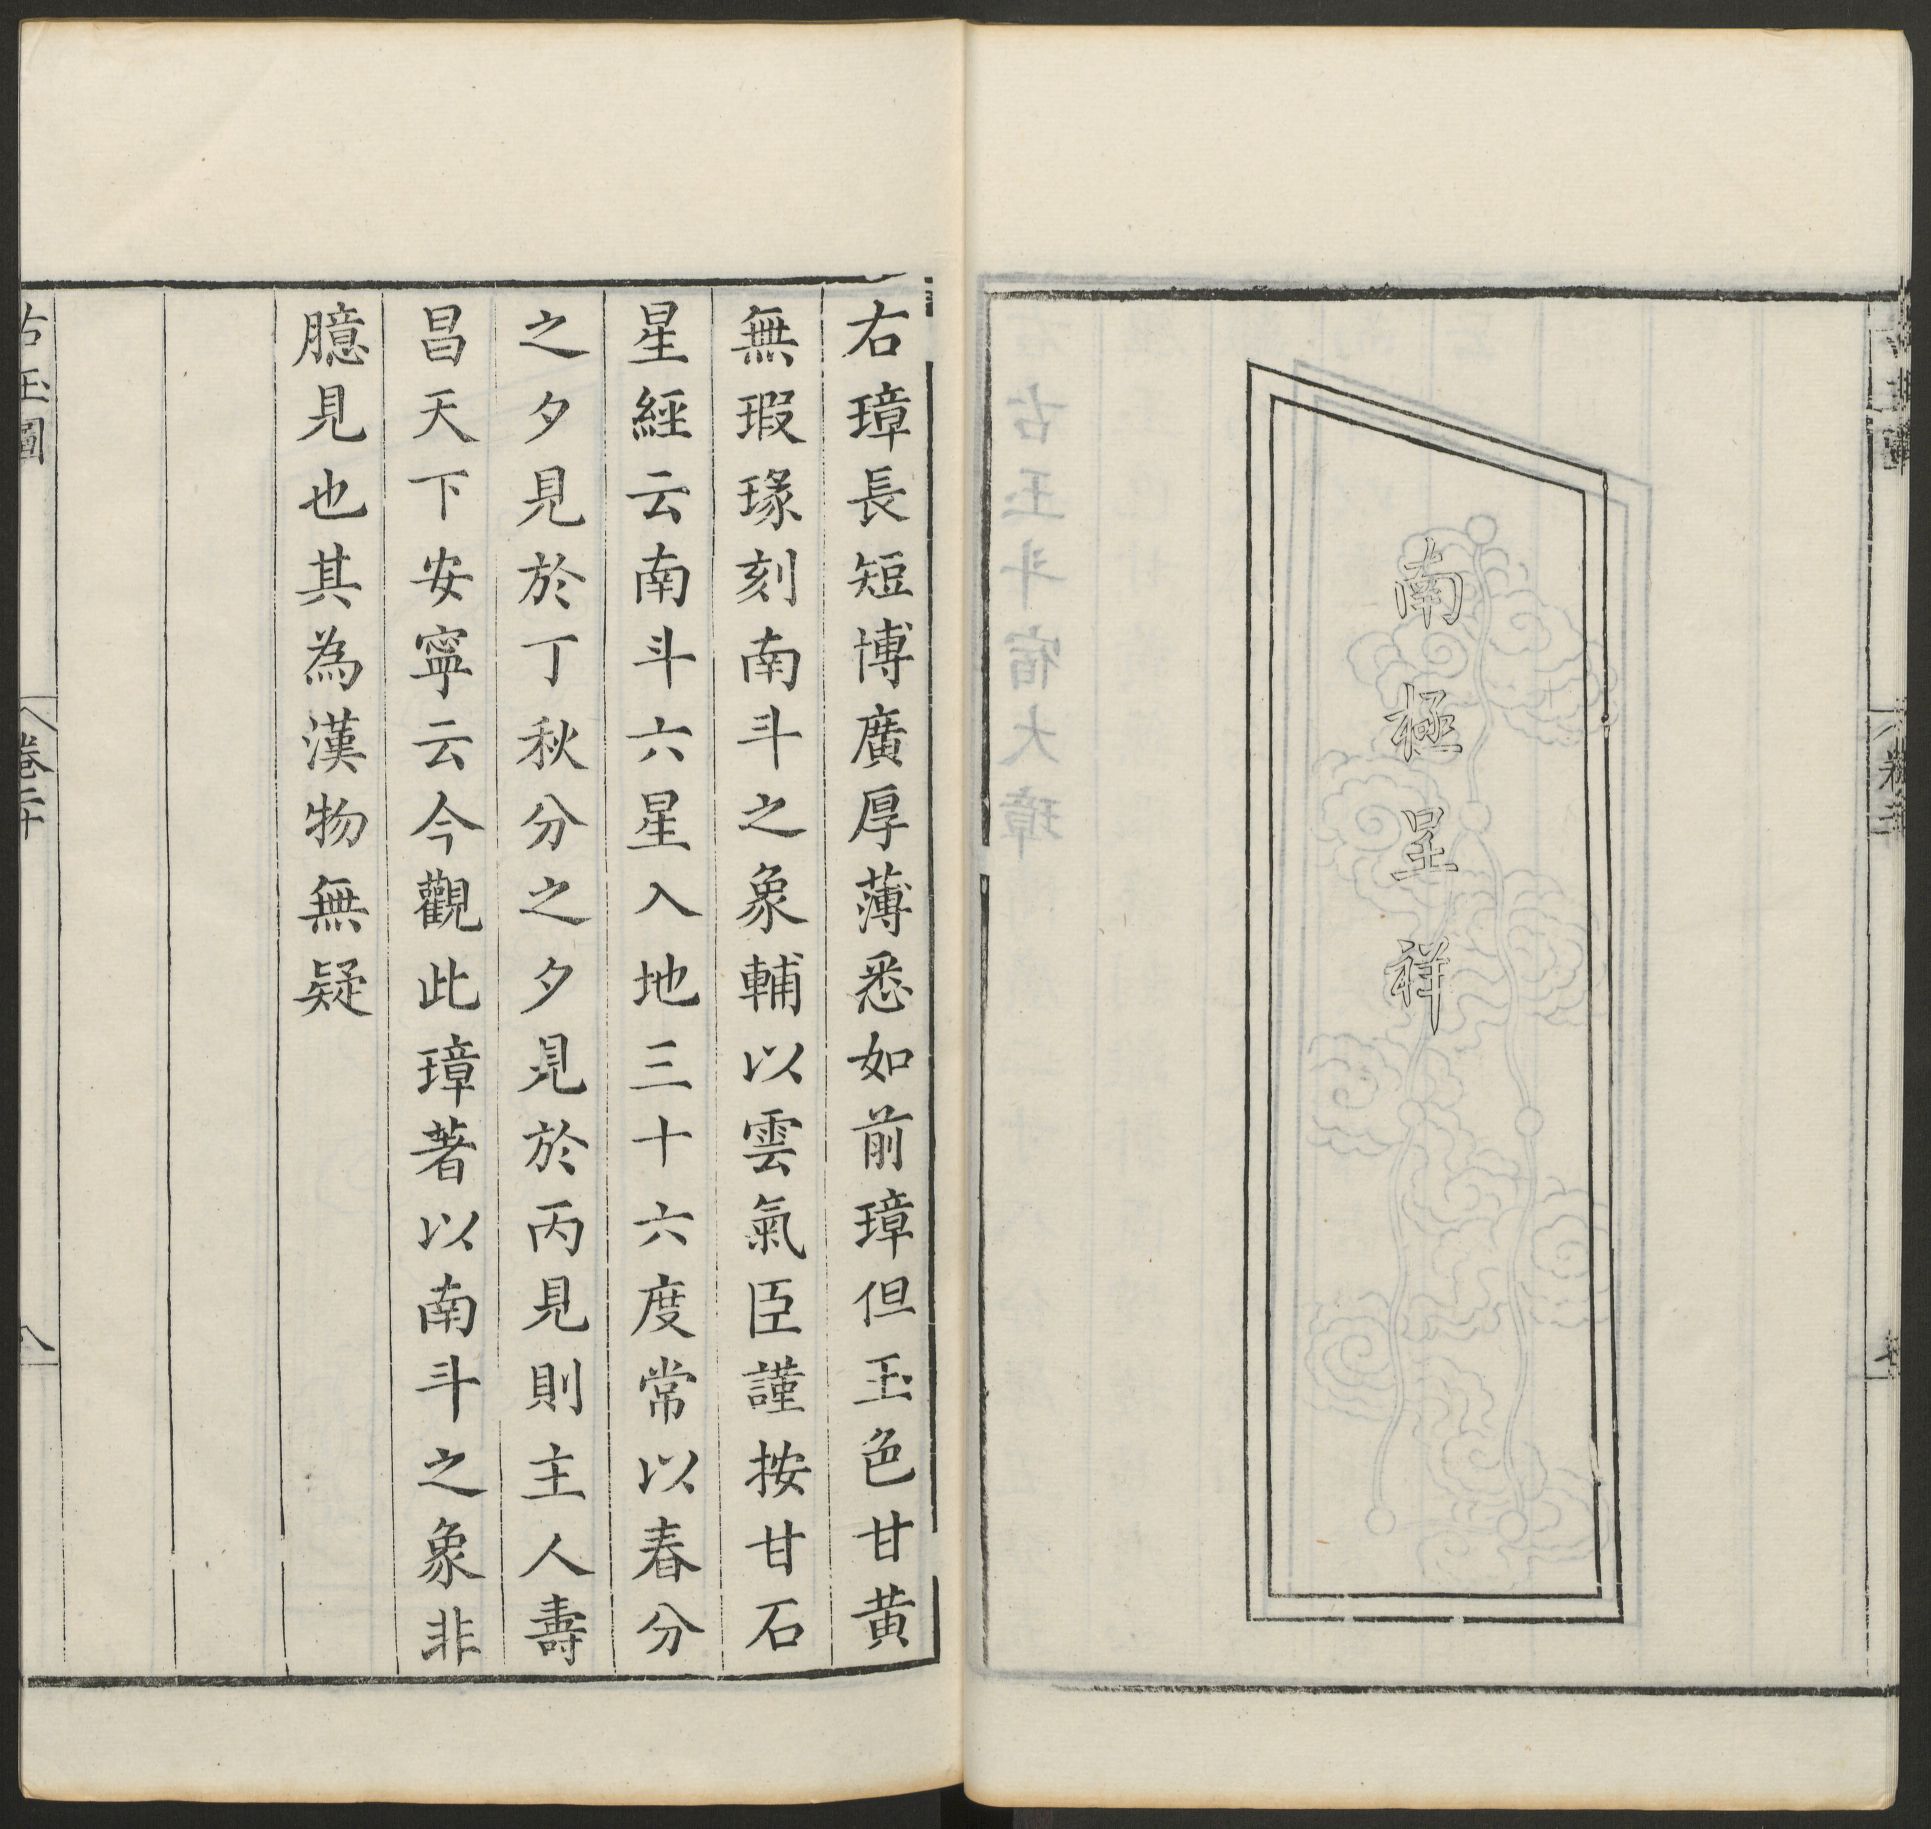 南極星祥
右璋長短博廣厚薄悉如前璋但玉色甘黄
無瑕瑑刻南斗之象輔以雲氣臣謹按甘石
星經云南斗六星入地三十六度常以春分
之夕見於丁秋分之夕見於丙見則主人壽
昌天下安寧云今觀此璋著以南斗之象非
臆見也其為漢物無疑
古玉圖
卷二十
八